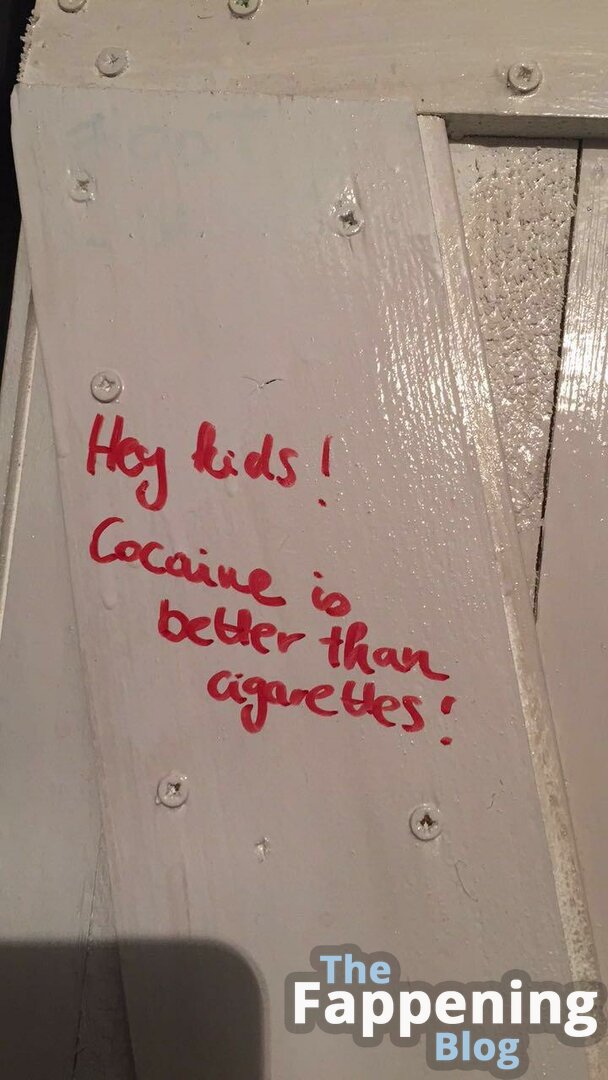 Hey kids!
Cocaine is
better than
cigarettes!
The
Fappening
Blog